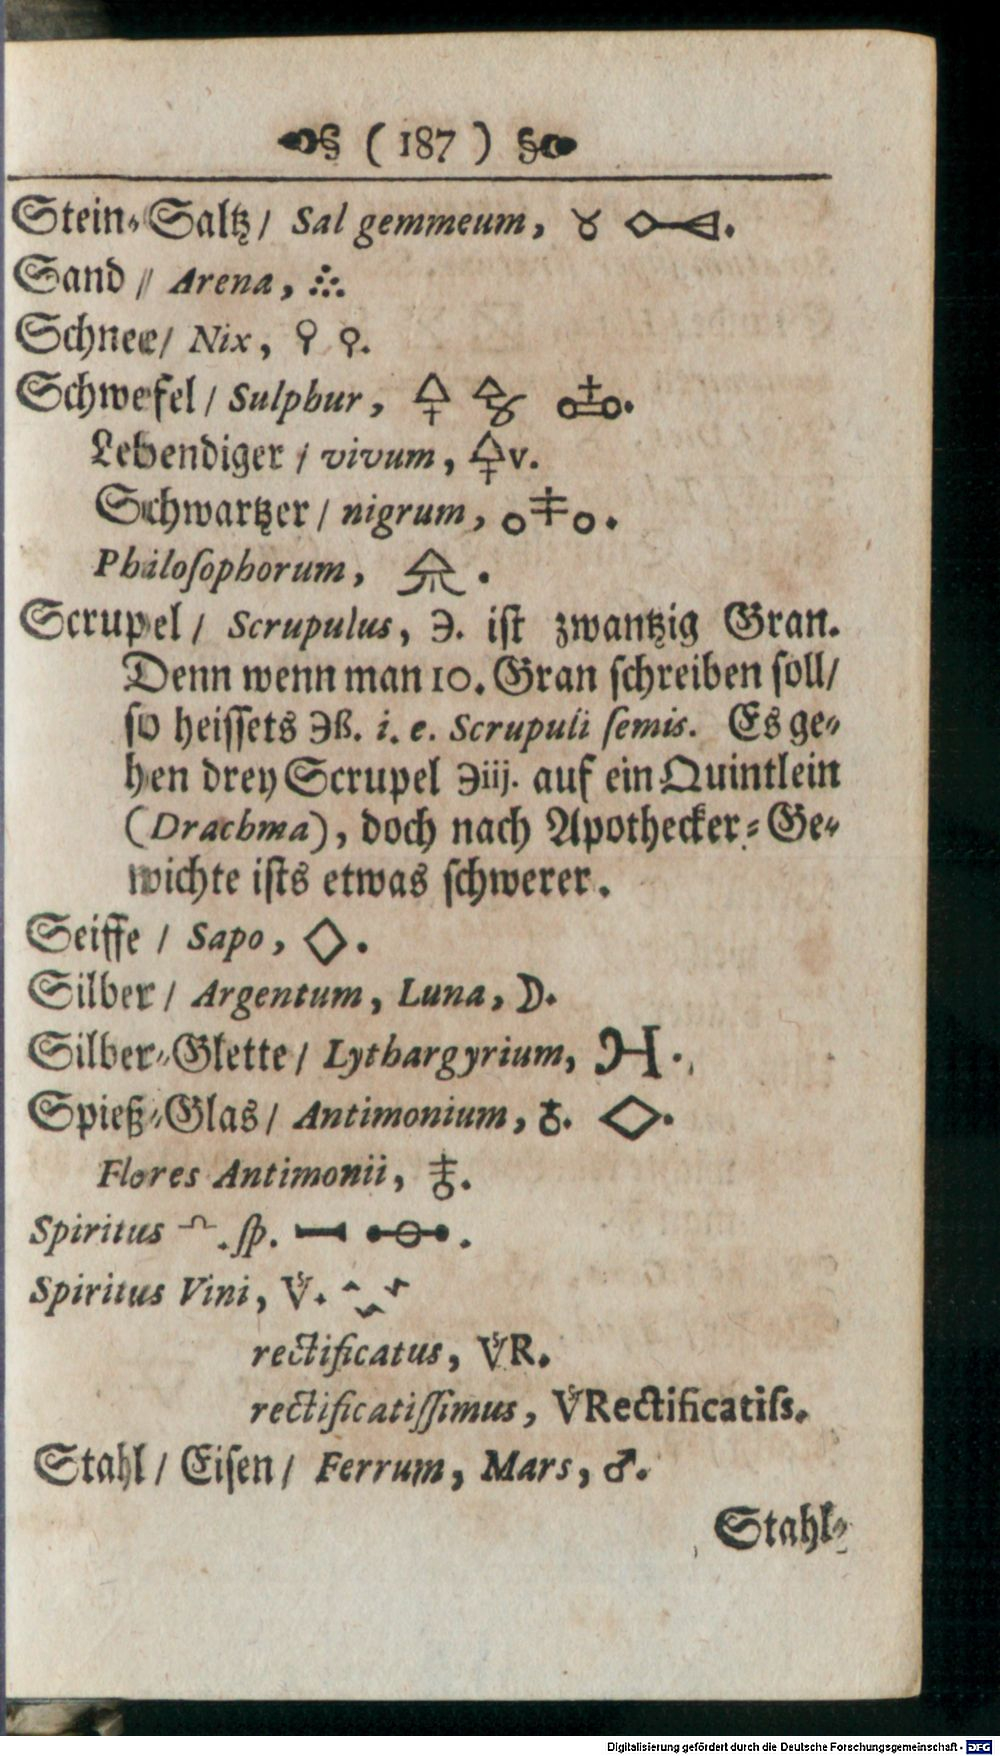 ( 187 )
Stein-Saltz/ Sal gemmeum, ♉ .
Sand // Arena, ∴.
Schnee/ Nix, ⚲ ⚲.
Schwefel / Sulphur, 🜍 .
Lebendiger / vivum, 🜍v.
Schwartzer / nigrum, o‡o.
Philoſophorum, .
Scrupel / Scrupulus, ℈. iſt zwantzig Gran.
Denn wenn man 10. Gran ſchreiben ſoll/
ſo heiſſets ℈ß. i. e. Scrupuli ſemis. Es ge-
hen drey Scrupel ℈iij. auf ein Quintlein
(Drachma), doch nach Apothecker-Ge-
wichte iſts etwas ſchwerer.
Seiffe / Sapo, ◇.
Silber / Argentum, Luna, ☽.
Silber-Glette / Lythargyrium, .
Spieß-Glas / Antimonium, ♁. ◇.
Flores Antimonii, .
Spiritus . ſp. .
Spiritus Vini, V.
rectificatus, VR.
rectificatiſſimus, VRectificatiſs.
Stahl / Eiſen / Ferrum, Mars, ♂.
Stahl-
Digitalisierung gefördert durch die Deutsche Forschungsgemeinschaft - DFG